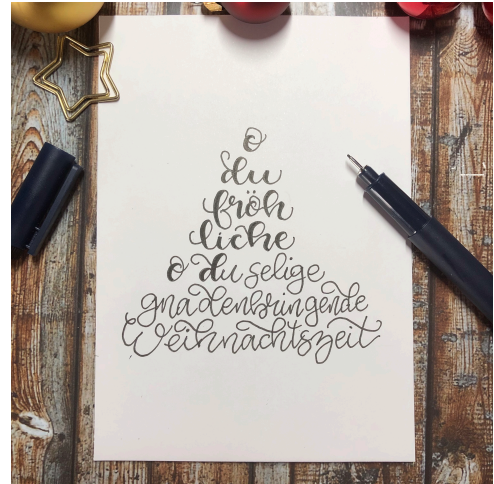 o
du
fröh
liche
o du selige
gnadenbringende
Weihnachtszeit